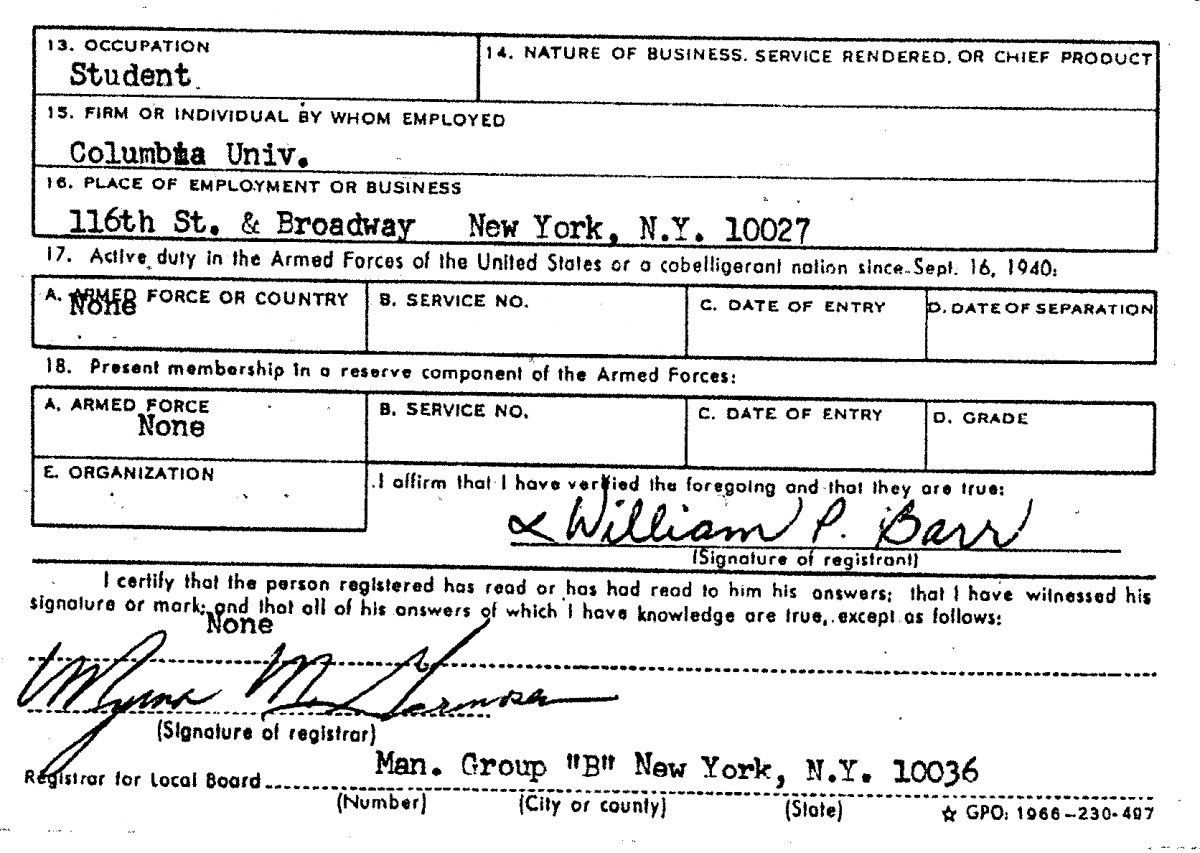 13. OCCUPATION
Student
14. NATURE OF BUSINESS, SERVICE RENDERED, OR CHIEF PRODUCT
15. FIRM OR INDIVIDUAL BY WHOM EMPLOYED
Columbia Univ.
16. PLACE OF EMPLOYMENT OR BUSINESS
116th St. & Broadway New York, N.Y. 10027
17. Active duty in the Armed Forces of the United States or a cobelligerant nation since Sept. 16, 1940:
A. ARMED FORCE OR COUNTRY
None
B. SERVICE NO.
C. DATE OF ENTRY
D. DATE OF SEPARATION
18. Present membership in a reserve component of the Armed Forces:
A. ARMED FORCE
None
B. SERVICE NO.
C. DATE OF ENTRY
D. GRADE
E. ORGANIZATION
I affirm that I have verified the foregoing and that they are true:
William P. Barr
(Signature of registrant)
I certify that the person registered has read or has had read to him his answers; that I have witnessed his
signature or mark; and that all of his answers of which I have knowledge are true, except as follows:
None
Myrna
(Signature of registrar)
Registrar for Local Board Man. Group "B" New York, N.Y. 10036
(Number) (City or county) (State)
☆ GPO: 1966-230-497